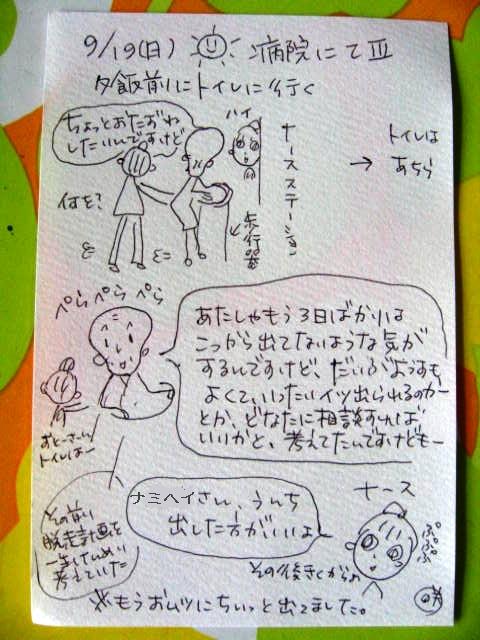 9/19(日) 病院にてⅢ
夕飯前にトイレに行く
ちょっとおたずね
したいんですけど
ハイ
ナースステーション
→ トイレは
あちら
何を?
歩行器
ぺらぺらぺら
あたしゃもう3日ばかりは
こっから出てないような気が
するんですけど、だいぶようすも
よくて、いったいイツ出られるのかー
とか、どなたに相談すれば
いいかと、考えてたんですけどもー
おとーさーん
トイレはー
その前に
脱走計画を
一生けんめい
考えていた
ナミヘイさん、うんち
出した方がいいよ
ナース
ぷぷぷ
その後きくからね
※もうおムツにちぃっと出てました。